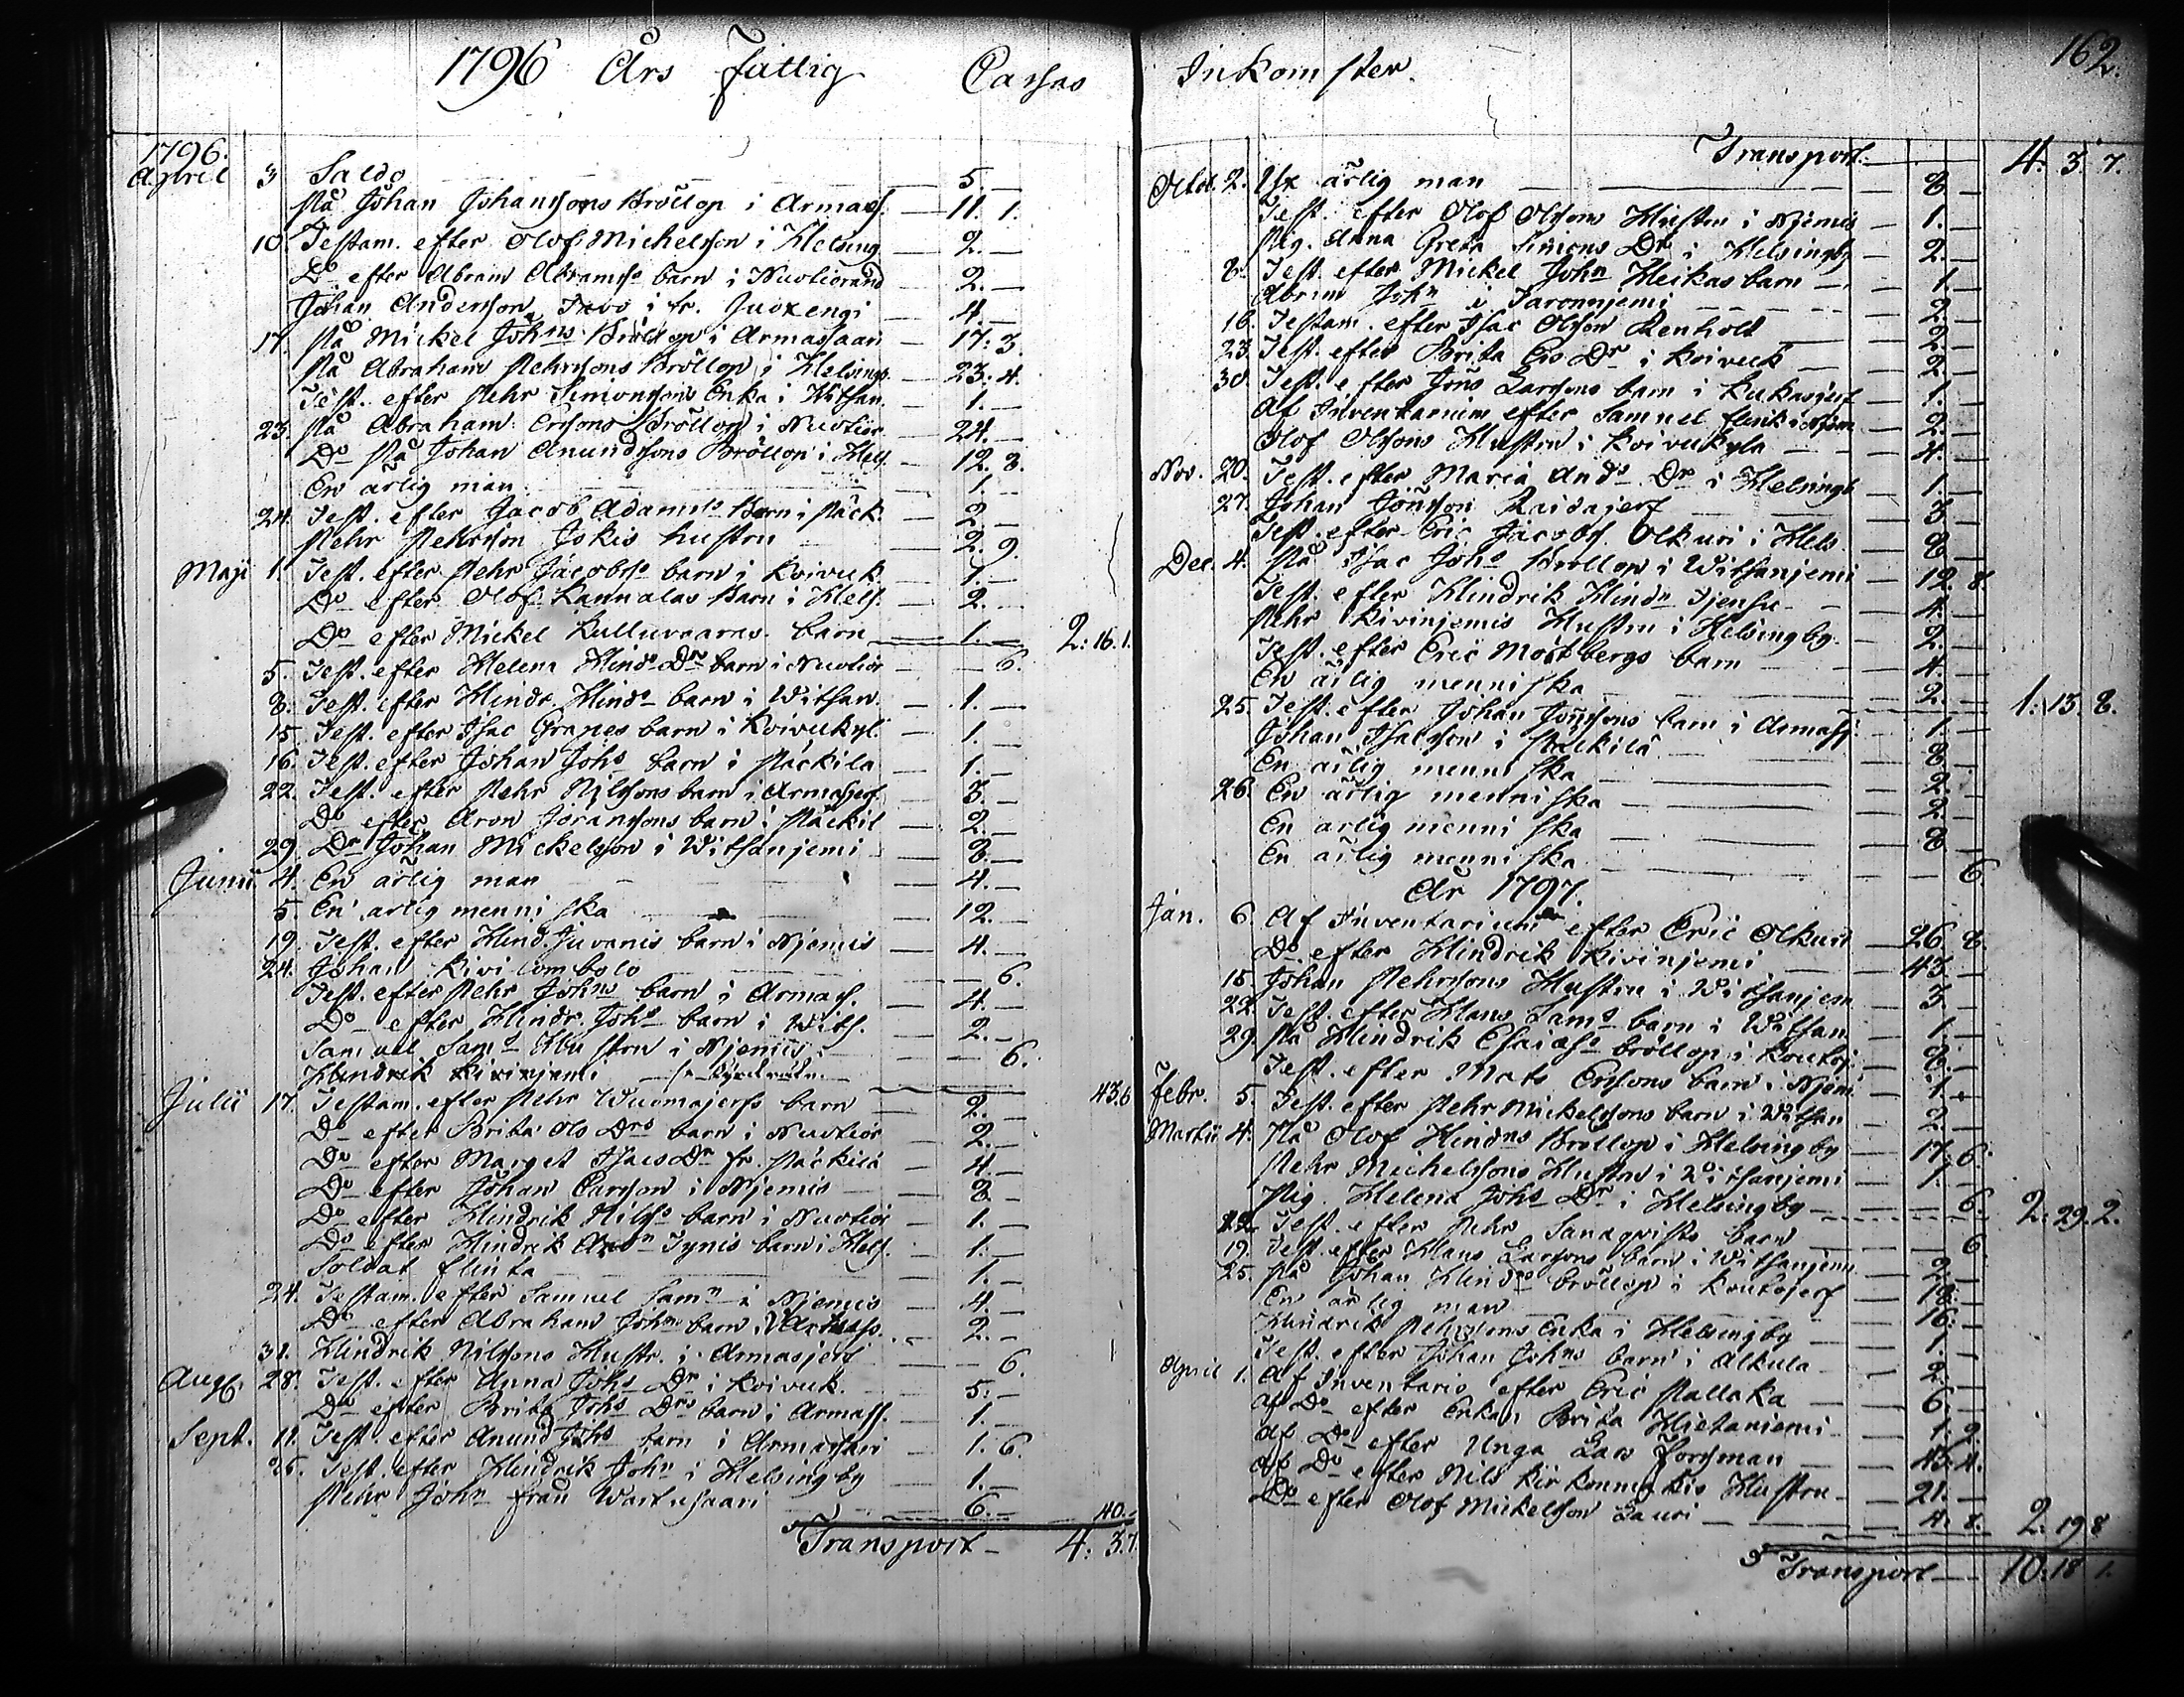 1796 Års Fattig Cassas
1796.
April 3 Saldo 5.
På Johan Johanssons Bröllop i Armass. 11. 1.
10 Testam. efter Olof Michelsson i Helsing 2.
Do efter Abram Abramss barn i Nuotiorand 2.
Johan Andersson 4.
17. På Mickel Johns Bröllop i Armassaari 17: 3.
På Abraham Pehrssons Bröllop i Helsingb. 23: 4.
Test. efter Pehr Simonssons Enka i Witsan. 1.
23. På Abraham Ersons Bröllop i Nuotior 24.
Do På Johan Anundssons Bröllop i Hels. 12. 8.
En ärlig man 1.
24. Test. efter Jacob Adams Barn i Päck. 2.
Pehr Pehrsson Jokis hustru 2. 9.
Maji 1. Test. efter Pehr Jacobss barn i Koivuk. 1.
Do efter Olof Lannalas Barn i Hels. 2.
Do efter Mickel Kulluvaaras barn 1. 2: 16. 1.
5. Test. efter Helena Hinds Dr barn i Nuotior 6.
8. Test. efter Hindr. Hinds barn i Witsan. 1.
15. Test. efter Isac Grapes barn i Koivukyl. 1.
16. Test. efter Johan Johs barn i Päckila 1.
22. Test. efter Pehr Nilssons barn i Armasjerf 3.
Do efter Aron Joranssons barn i Päckil 2.
29 Dr Johan Mickelsson i Witsanjemi 8.
Junii 4. En ärlig man 4.
5. En ärlig menniska 12.
19. Test. efter Hind. Juvanis barn i Njemis 4.
24. Johan Kivilombolo 6.
Test. efter Pehr Johns barn i Armass. 4.
Do efter Hindr. Johs barn i Wits. 2.
Samuel Sams Hustru i Njemis 6.
Hindrik Kivinjemi 43. 6
Julii 17. Testam. efter Pehr Wuomajerfs barn 2.
Do efter Brita Ols Drs barn i Nuotior 2.
Do efter Marget Isacs Dr fr. Päckilä 4.
Do efter Johan Carsson i Njemis 8
Do efter Hindrik Nilss barn i Nuotior 1.
Do efter Hindrik Tynis barn i Hels. 1.
Soldat Flinta 1.
24. Testam. efter Samuel Samn i Njemis 4.
Do efter Abraham Johns barn 2.
31. Hindrik Nilssons Hustr. i Armasjerf 6.
Aug. 28. Test. efter Anna Johs Dr i Koivuk. 5.
Do efter Brita Johs Drs barn i Armass. 1.
Sept. 11. Test. efter Anund Johs barn i Armassari 1. 6.
25. Test. efter Hindrik John i Helsingby 1.
Pehr John från Wartusaari 6. 40.
Transport 4: 3. 7.
Inkomster.
162.
Transport 4. 3. 7.
Octob. 2. ärlig man 8
Test. efter Olof Olssons Hustru i Njemis 1.
Pig. Anna Greta Simons Dr i Helsingby 2.
8. Test. efter Mickel John Heikas barn 1.
Abram John i 2.
16. Testam. efter Isac Olsson Renholt 2.
23. Test. efter Brita Ers Dr i Koivuk 2.
30. Test. efter Jöns Larssons barn i Kukasjerf 1.
Af Inventarium efter Samuel 2.
Olof Olssons Hustru i Koivukyla 4.
Nov. 20. Test. efter Maria Ands Dr i Helsingb 1.
27. Johan Jönsson Raidajerf 3
Test. efter Eric Jacobs. Olkuri i Hels. 8
Dec. 4. På Isac Johs Bröllop i Witsanjemi 12. 8.
Test. efter Hindrik Hindn 4.
Pehr Kivinjemis Hustru i Helsingby. 2.
Test. efter Eric Mortbergs barn 4.
En ärlig menniska 2. 1: 13. 8.
25. Test. efter Johan Jönssons barn i Armass. 1.
Johan Isacsson i Päckilä 8.
En ärlig menniska 2.
26. En ärlig menniska 2.
En ärlig menniska 8
En ärlig menniska 6.
År 1797.
Jan. 6. Af Inventarium efter Eric Olkuri 26 8.
Do efter Hindrik Kivinjemi 43
15. Johan Pehrssons Hustru i Witsanjem 3.
22. Test. efter Hans Lars barn i Witsan 1
29. På Hindrik Esaiæs bröllop i Koutoj. 8.
Test. efter Mats Ersons barn i Njem. 1.
Febr. 5. Test. efter Pehr Mickelssons barn i Witsan 2.
Martii 4. På Olof Hindns Bröllop i Helsingby 17. 6.
Pehr Michelssons Hustru i Witsanjemi 1.
Pig. Helena Johs Dr i Helsingby 6. 2: 29. 2.
12. Test. efter Pehr Sandqvists barn 6
19. Test. efter Hans Larssons barn i Witsanjem 2
25. På Johan Hinds bröllop i Koutojerf 18.
En ärlig man 16.
Hindrik Pehrssons Enka i Helsingby 1.
Test. efter Johan Johns barn i Alkula 2.
April 1. Af Inventario efter Eric Pallaka 6.
af Do efter Enkan Brita Hietaniemi 1. 2.
af Do efter Unga Lars Forssman 45. 4.
af Do efter Nils Hustru 21.
Do efter Olof Mickelsson Lauri 4. 8. 2: 19 8
Transport 10: 18 1.